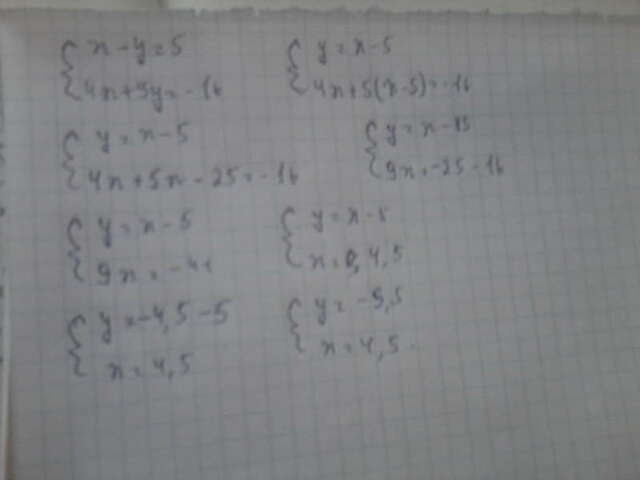 x - y = 5
4x + 5y = -16
y = x - 5
4x + 5(x - 5) = -16
y = x - 5
4x + 5x - 25 = -16
9x = -25 - 16
y = x - 5
9x = -41
y = x - 5
y = -4,5 - 5
x = 4,5
y = -9,5
x = 4,5